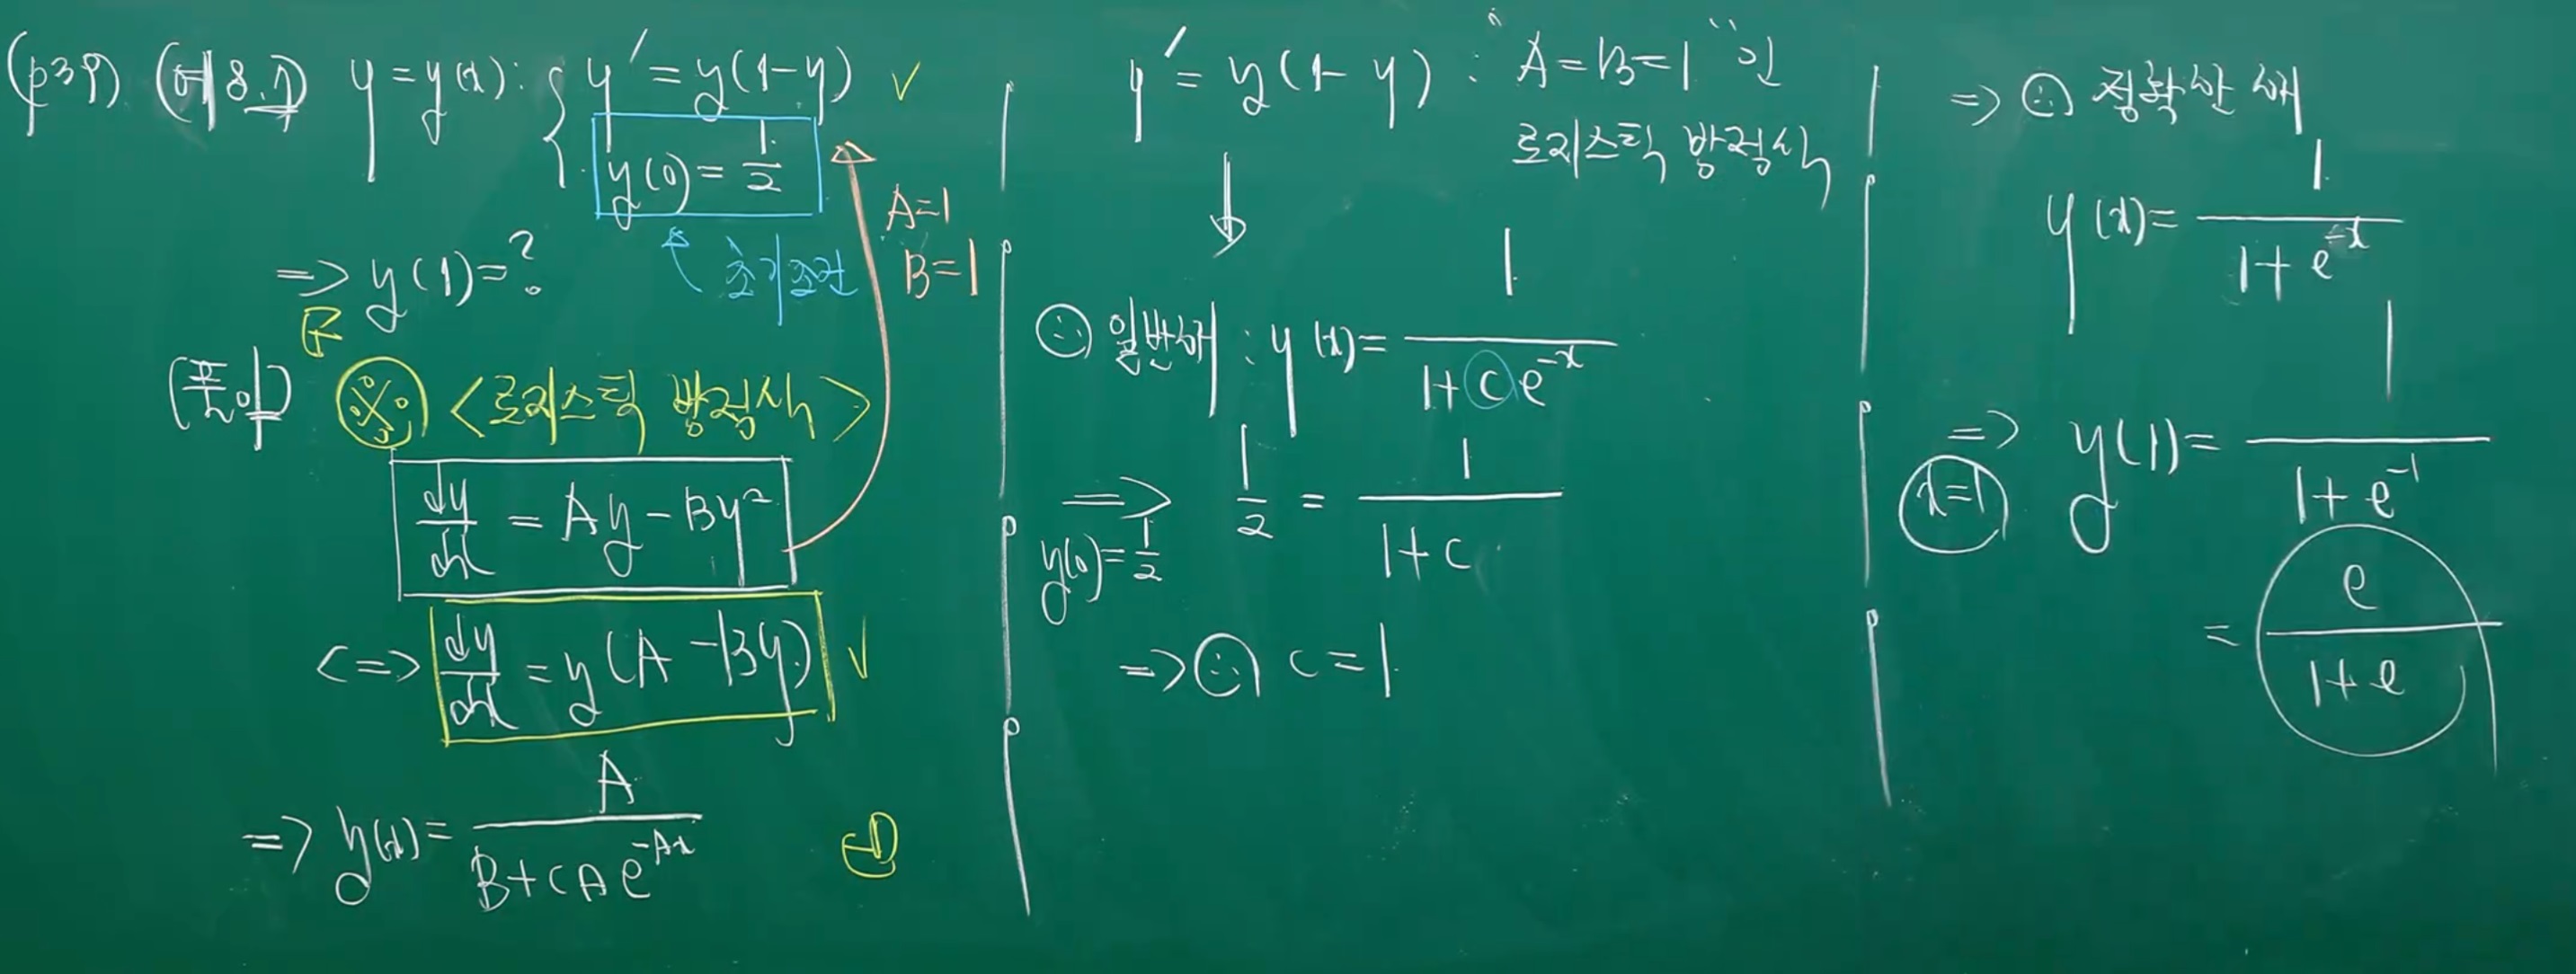 (p39) (예 8.1) y = y(x) : { y' = y(1-y) ✓
y(0) = 1/2
초기조건
A=1
B=1
=> y(1)=?
(풀이) ※ <로지스틱 방정식>
dy/dx = Ay - By²
<=> dy/dx = y(A - By) ✓
=> y(x) = A/(B+cAe^{-Ax})
y' = y(1-y) : "A=B=1"인
로지스틱 방정식
↓
∴ 일반해 : y(x) = 1/(1+ce^{-x})
=> 1/2 = 1/(1+c)
y(0)=1/2
=> ∴ c=1
=> ∴ 정확한 해
y(x) = 1/(1+e^{-x})
=> y(1) = 1/(1+e^{-1})
x=1
= e/(1+e)